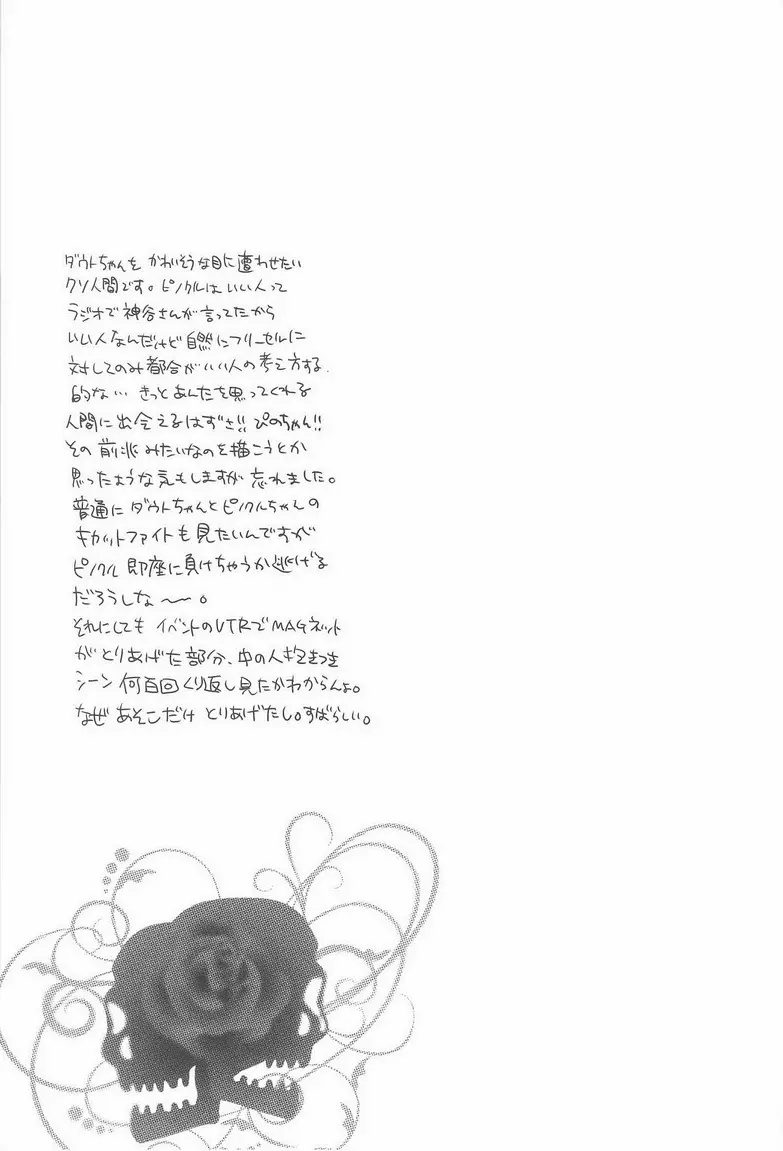 ダウトちゃんを かわいそうな目に遭わせたい
クソ人間です。ピノクルは いい人って
ラジオで 神谷さんが 言ってたから
いい人なんだけど 自然に フリーセルに
対してのみ 都合がいい人の 考え方する
的な… きっと あんたを 思ってくれる
人間に 出会えるはずさ!! ぴのちゃん!!
その 前兆 みたいなのを 描こうとか
思ったような 気もしますが 忘れました。
普通に ダウトちゃんと ピノクルちゃんの
キャットファイトも 見たいんですが
ピノクル 即座に 負けちゃうか 逃げる
だろうしな 〜〜。
それにしても イベントのVTRで MAGネット
が とりあげた 部分、中の人 抱きつき
シーン 何百回 くり返し 見たか わからんよ。
なぜ あそこだけ とりあげたし。すばらしい。